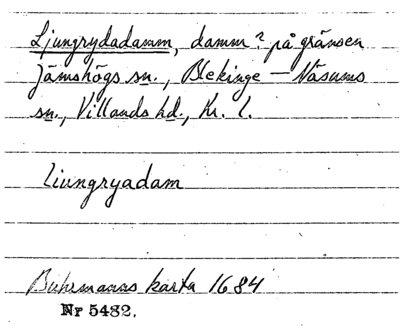 Ljungrydadamm, damm? på gränsen
Jämshögs sn., Blekinge — Näsums
sn., Villands hd., Kr. l.
liungryadam
Buhrmanns karta 1684
Nr 5482.